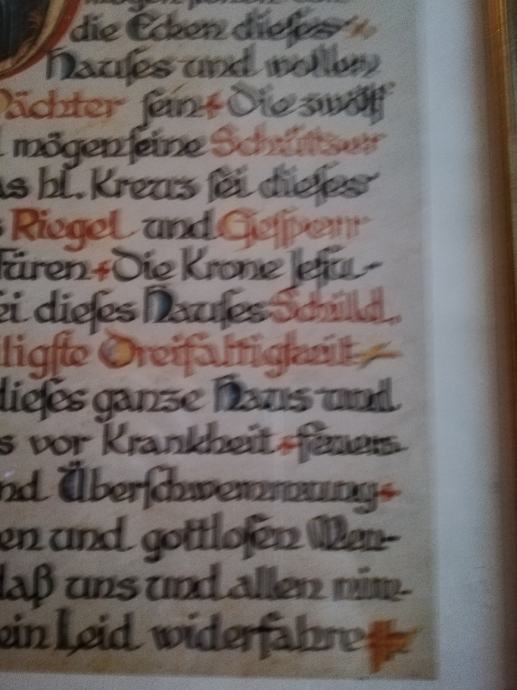 die Ecken dieses
Hauses und wollen
ächter sein + Die zwölf
mögen seine Schützer
as hl. Kreuz sei dieses
s Riegel und Gesperr
Türen + Die Krone Jesu -
ei dieses Hauses Schild,
ligste Dreifaltigkeit
dieses ganze Haus und
s vor Krankheit + Feuers -
nd Überschwemmung +
en und gottlosen Men -
daß uns und allen nim -
ein Leid widerfahre +